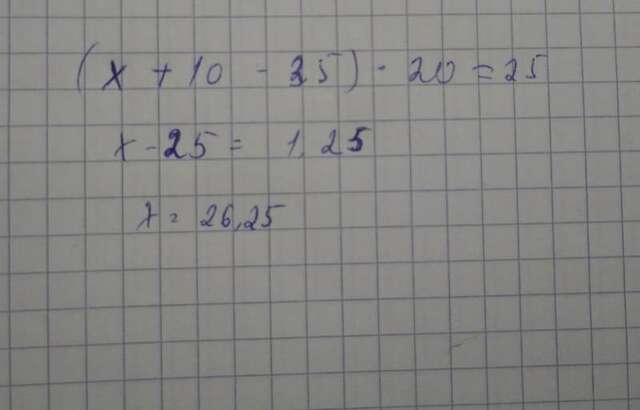 (x + 10 - 35) · 20 = 25
x - 25 = 1,25
x = 26,25